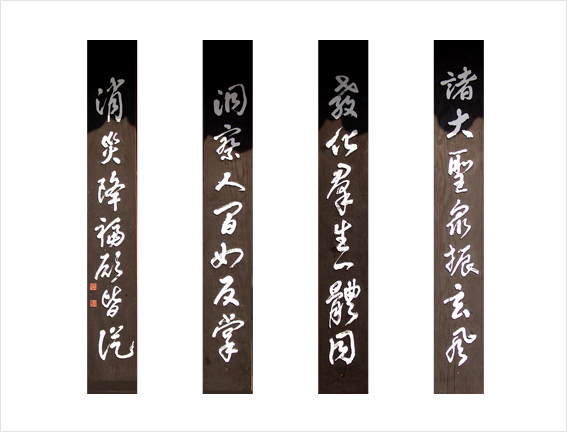 諸大聖衆振玄風
敎化羣生一體同
洞察人間如反掌
消災降福願皆從